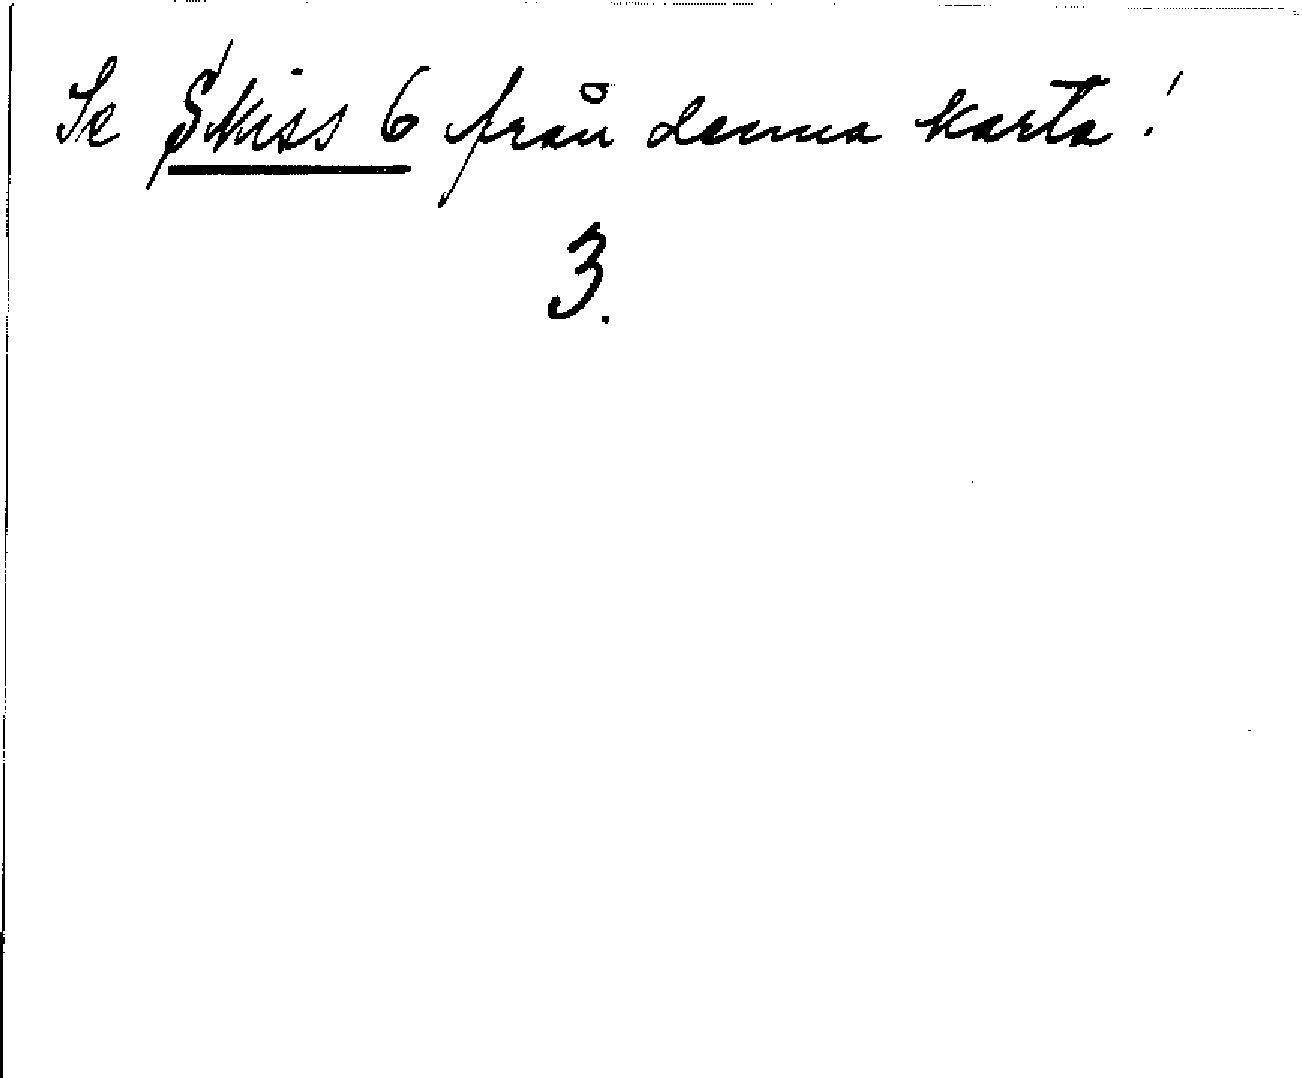 Se Skiss 6 från denna karta!
3.